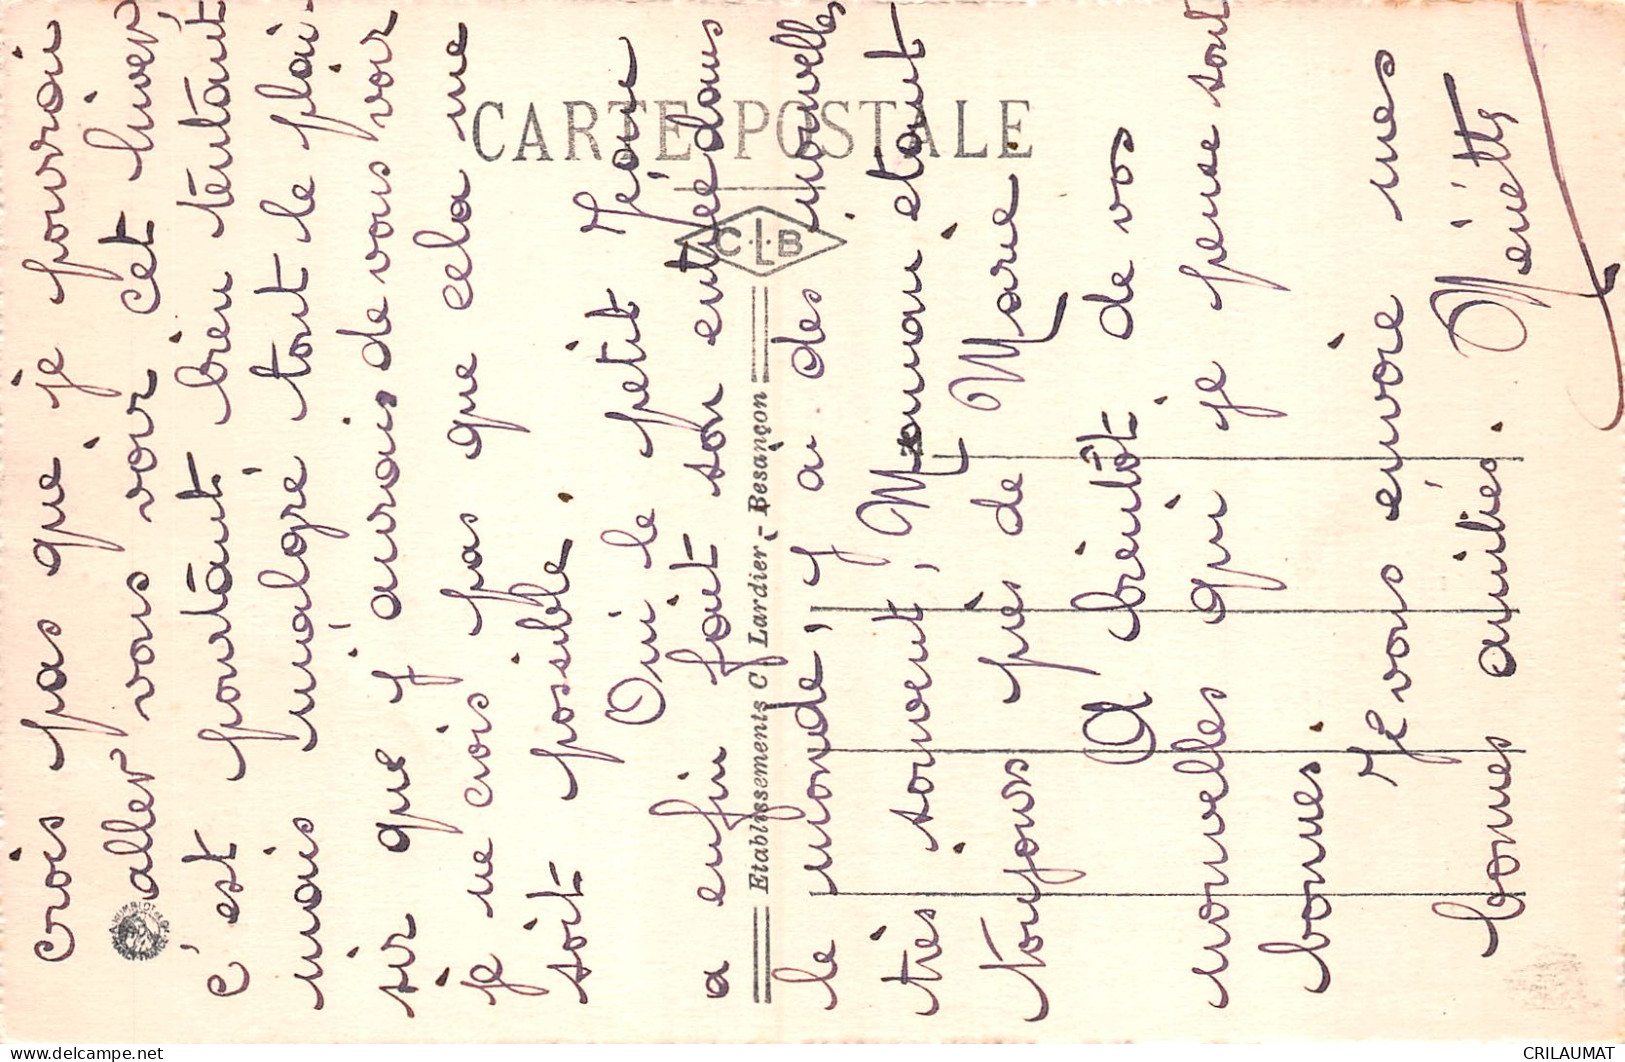 crois pas que je pourrai
aller vous voir cet hiver
c'est pourtant bien tentant
mais malgré tout le plai-
sir que j'aurais de vous voir
je ne crois pas que cela me
soit possible.
Oui le petit Jean
a enfin fait son entrée dans
le monde, j'y ai des nouvelles
très souvent, Maman étant
toujours près de Marie.
A bientôt de vos
nouvelles qui je pense sont
bonnes.
Je vous envoie mes
bonnes amitiés.
CARTE POSTALE
C·L·B
Etablissements C Lardier - Besançon
delcampe.net
CRILAUMAT